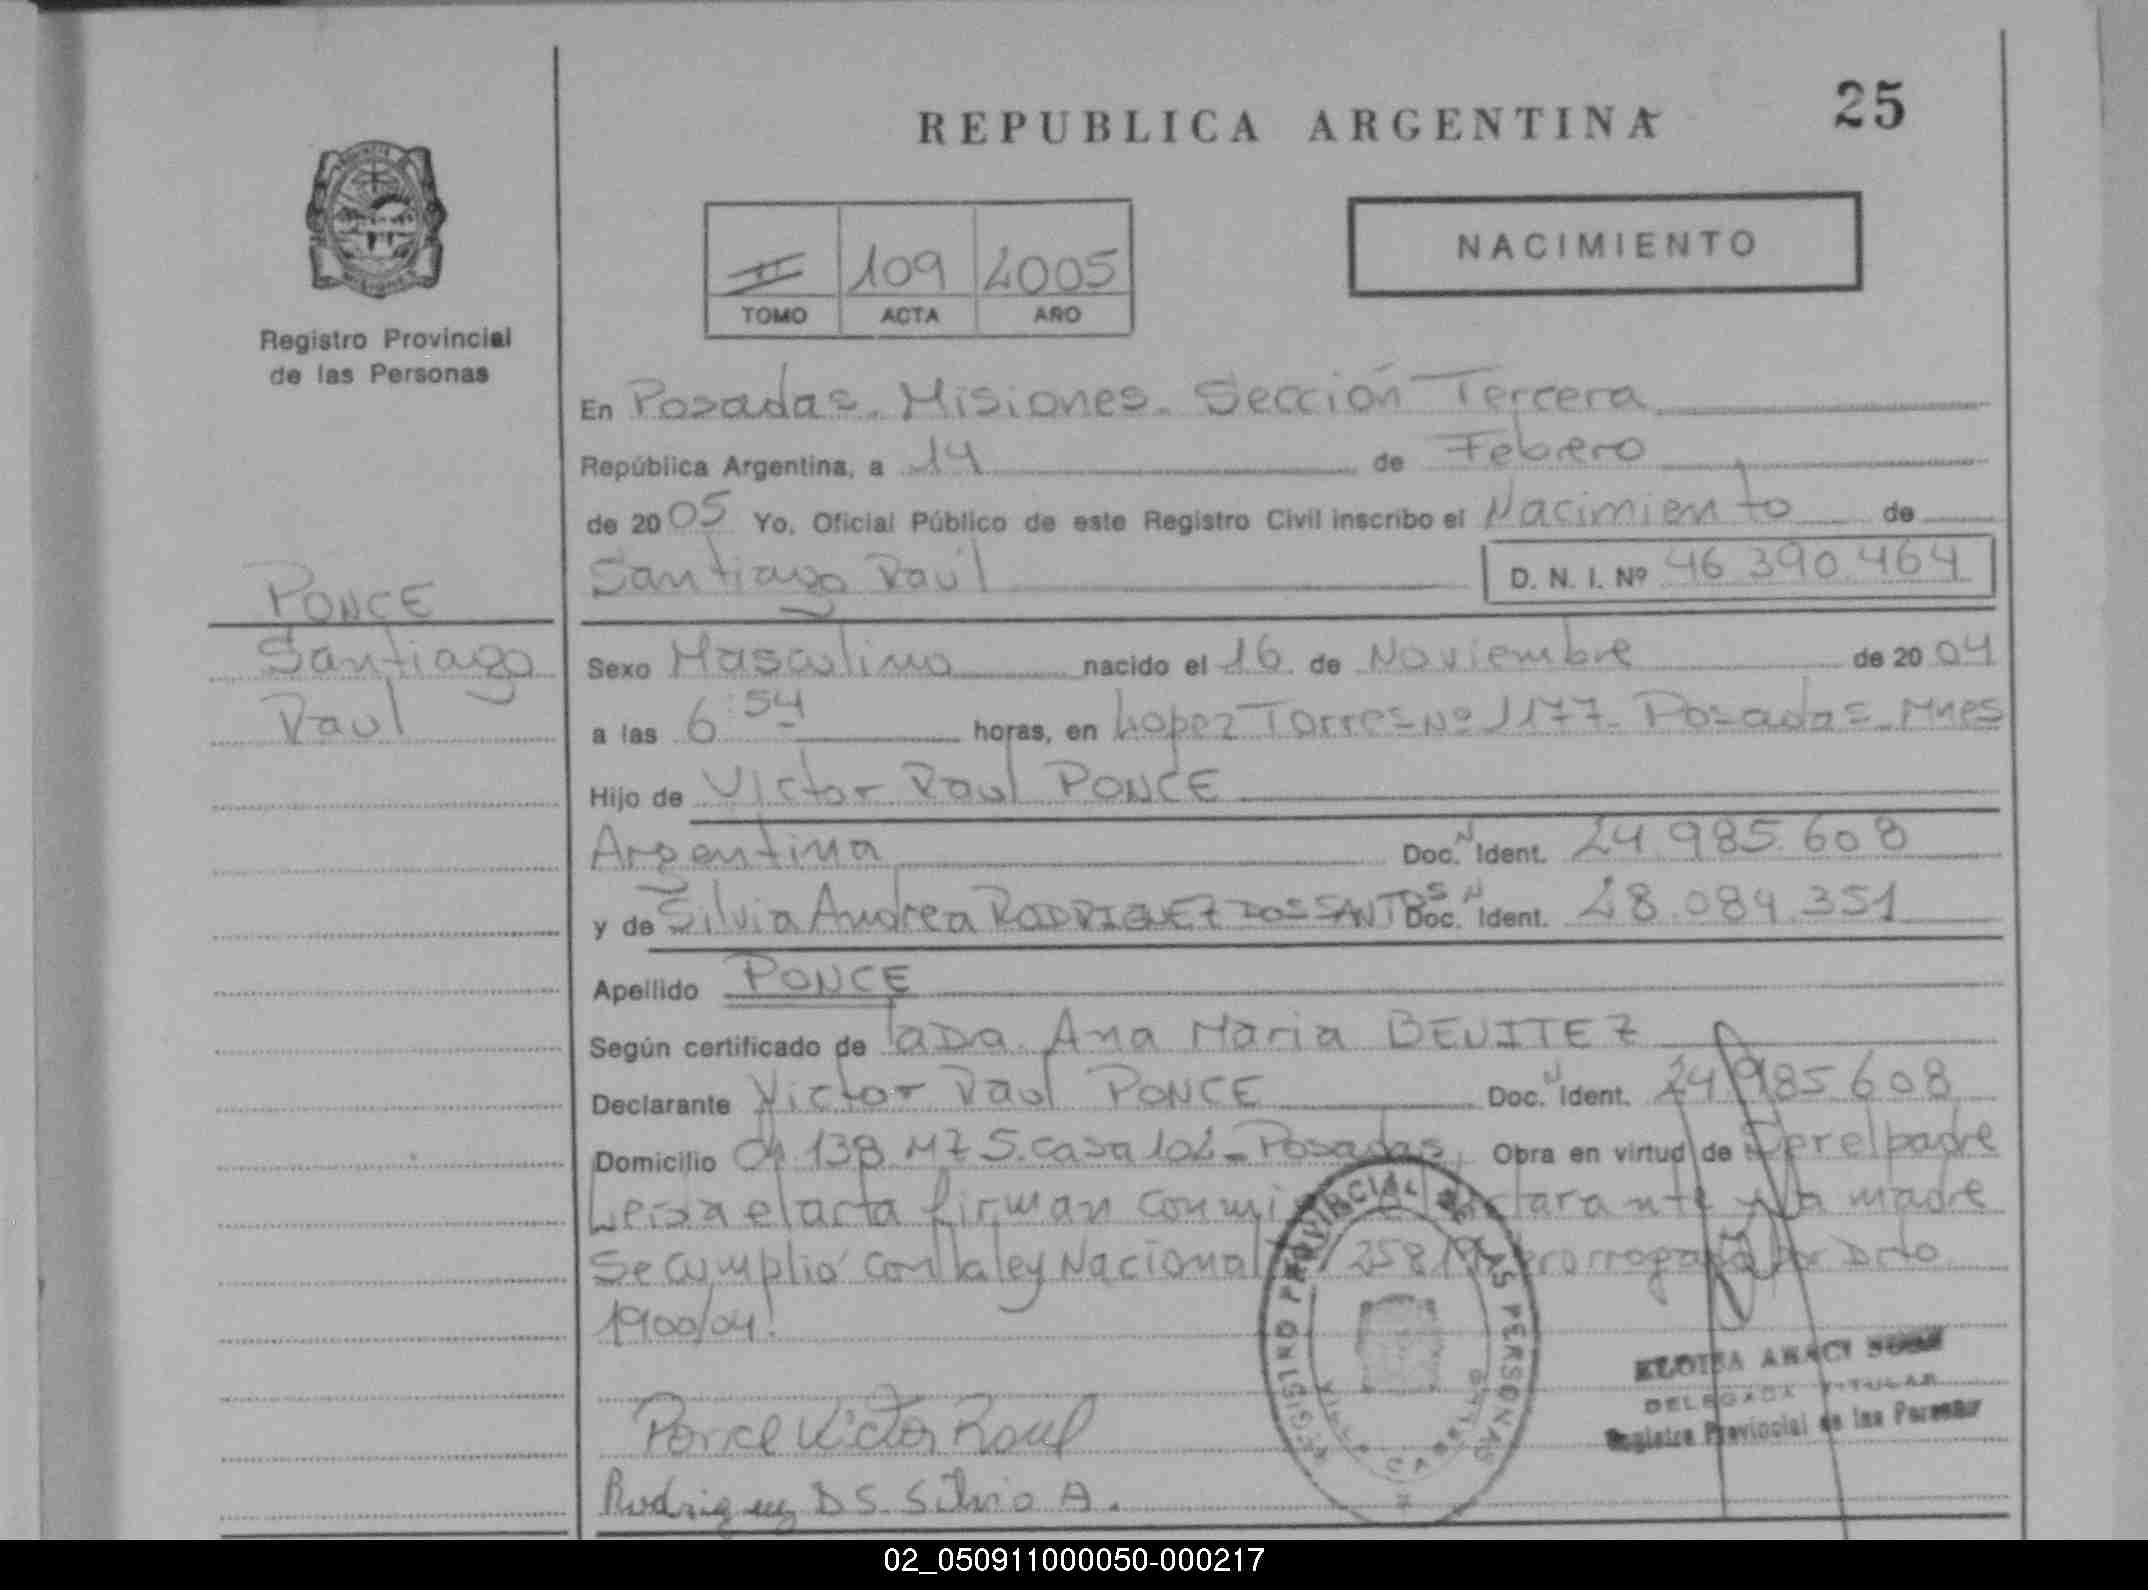 REPUBLICA ARGENTINA
25
Registro Provincial
de las Personas
II 109 2005
TOMO ACTA AÑO
NACIMIENTO
En Posadas. Misiones. Sección Tercera
República Argentina, a 14 de Febrero
de 2005 Yo, Oficial Público de este Registro Civil inscribo el Nacimiento de
Santiago Raúl D. N. I. Nº 46 390.464
PONCE
Santiago
Raul
Sexo Masculino nacido el 16 de Noviembre de 2004
a las 6:54 horas, en Lopez Torres Nº 1177. Posadas. Mnes
Hijo de Victor Raul PONCE
Argentina Doc. N Ident. 24 985.608
y de Silvia Andrea RODRIGUEZ DOS SANTOS Doc. N Ident. 28.084.351
Apellido PONCE
Según certificado de Ana Maria BENITEZ
Declarante Victor Raul PONCE Doc. N Ident. 24 985.608
Domicilio Ch 138 MZ 5. casa 102 - Posadas Obra en virtud de Ser el padre
Leida el acta firman conmigo el declarante y la madre
Se cumplió con la ley Nacional 25819 prorrogada por Dcto
1900/04.
Ponce Victor Raul
Rodriguez D S. Silvia A.
REGISTRO PROVINCIAL DE LAS PERSONAS
DELEGADA TITULAR
Registro Provincial de las Personas
02_050911000050-000217